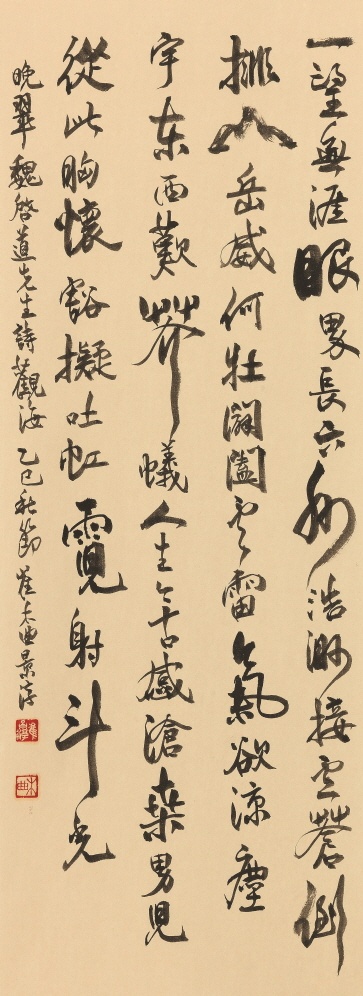 一望無涯眼界長六州浩渺接云蒼倒
排山岳威何壯闔云雷氣欲涼塵
宇东西歎芥蟻人生今古感滄桑男兒
從此胸懷豁擬吐虹霓射斗光
晚翠魏啓道先生詩觀海 乙巳秋節 崔大曲景淳